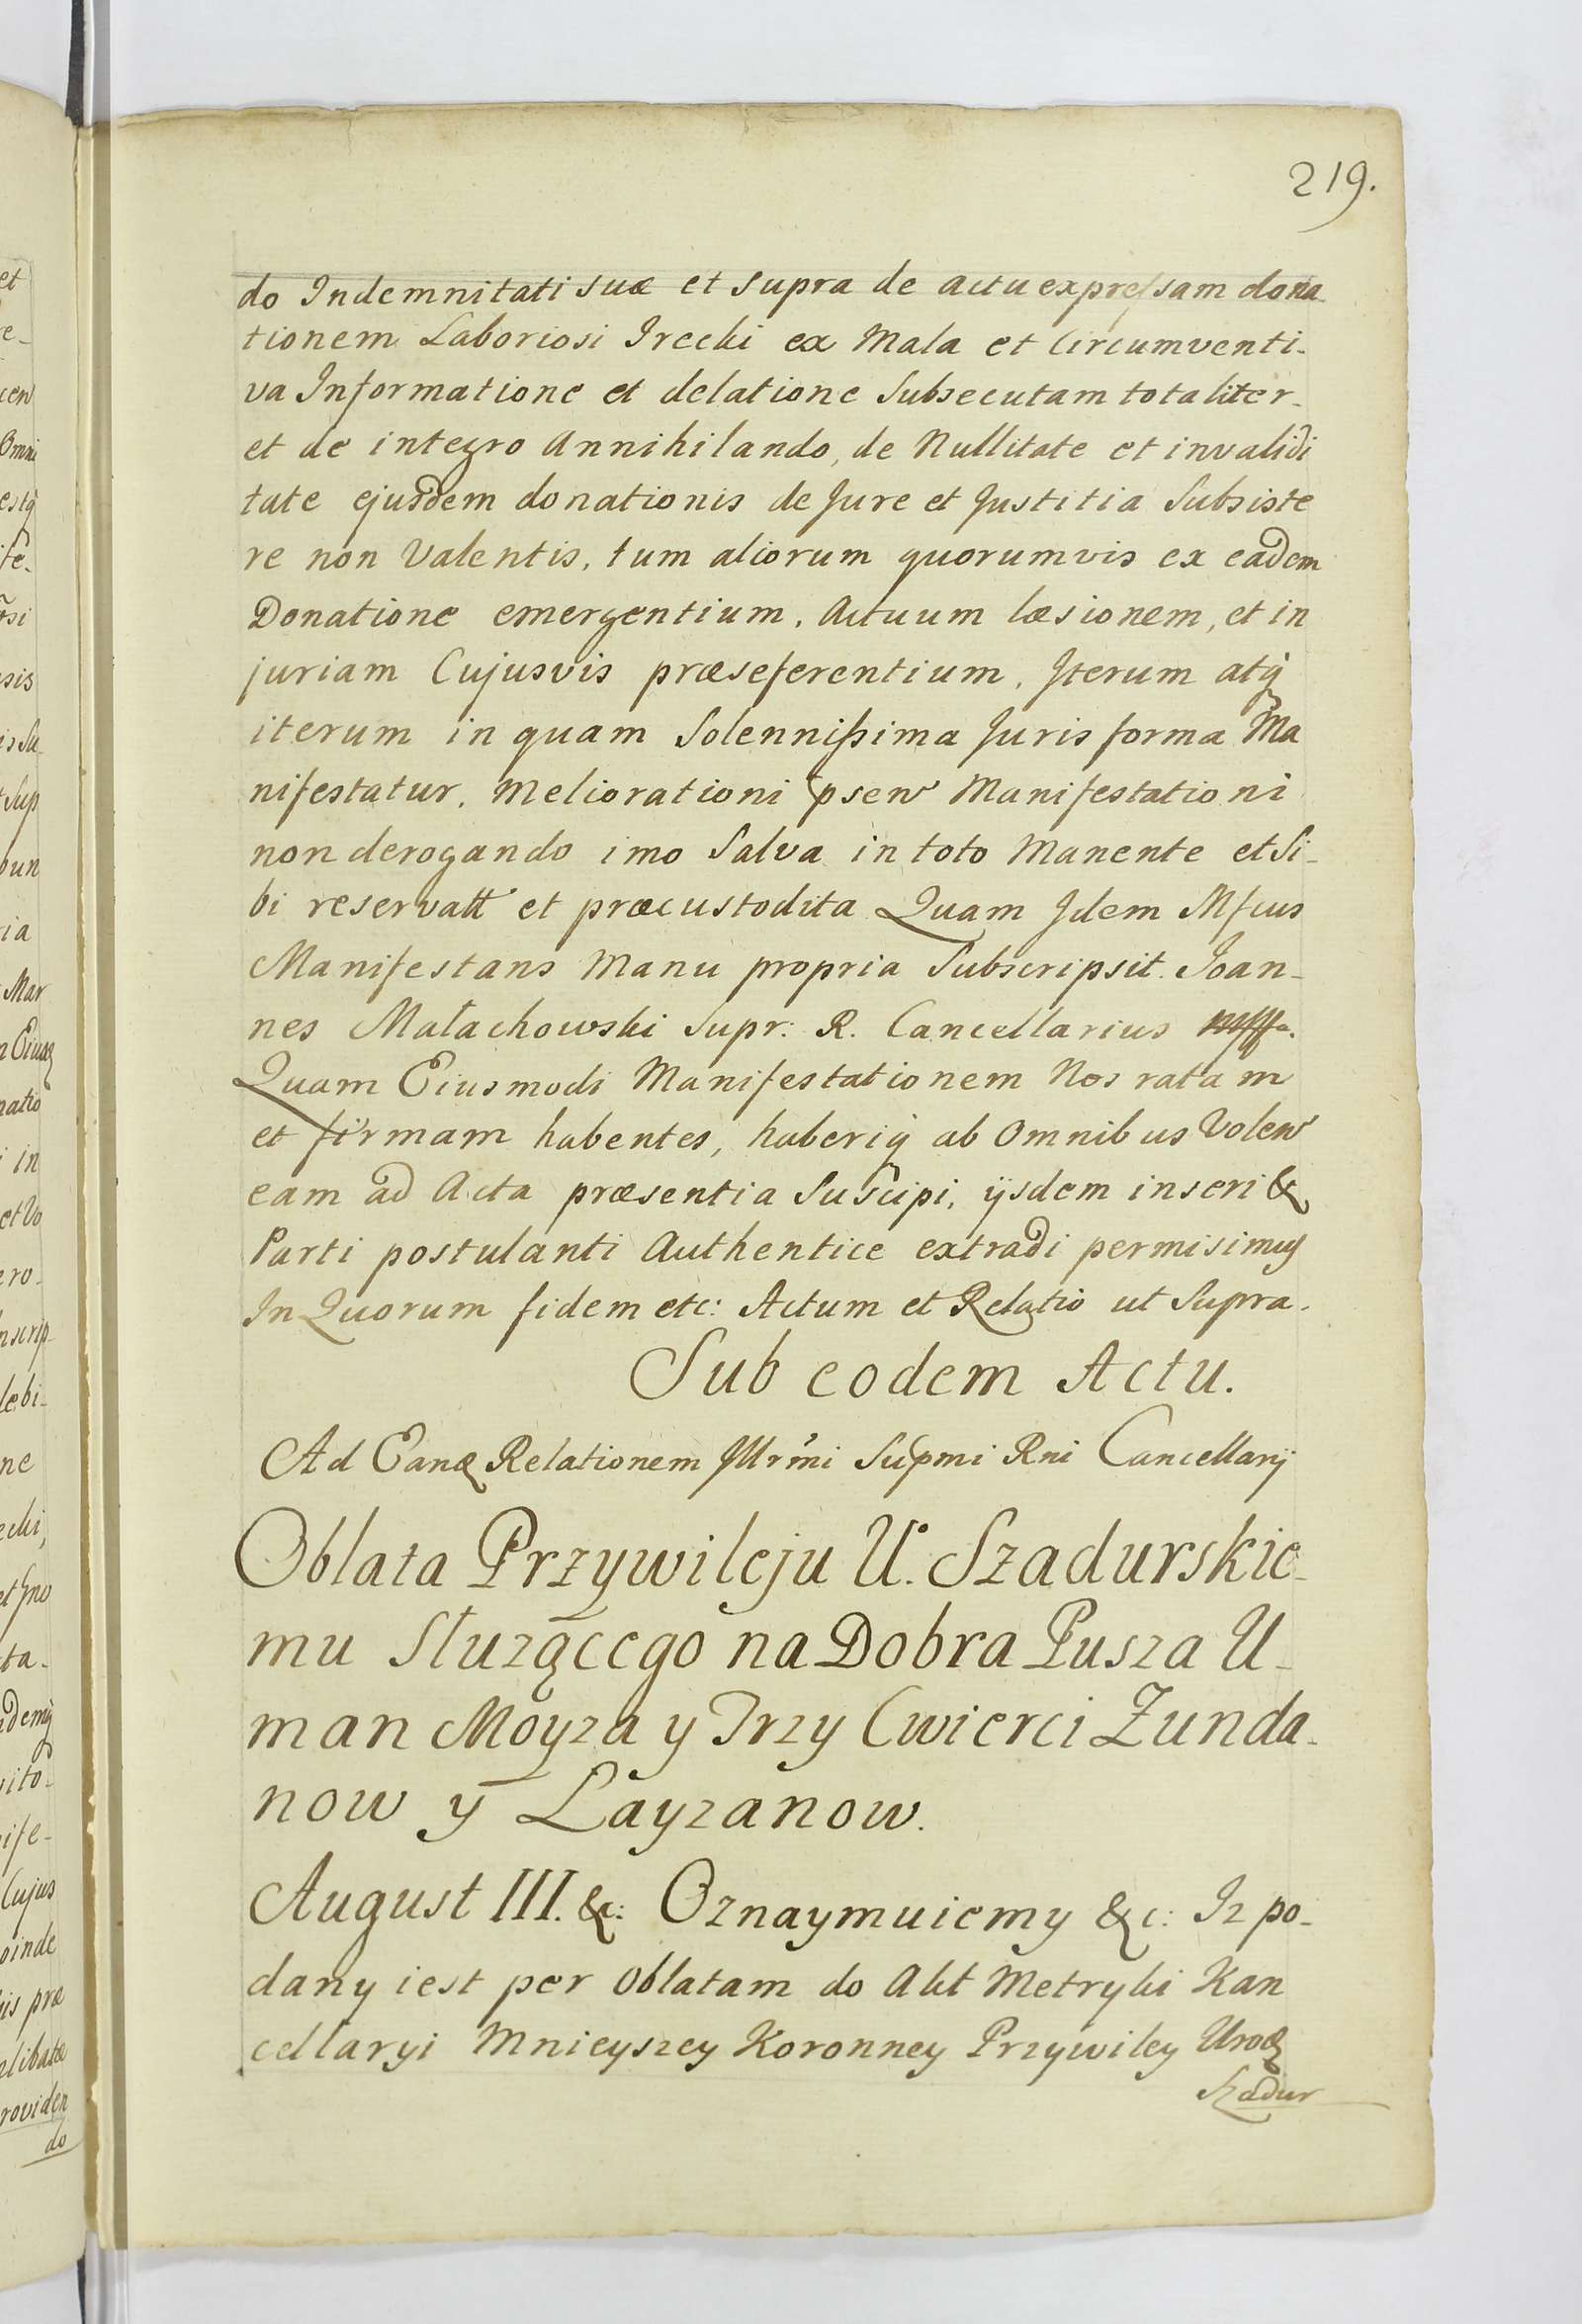 219.
do Indemnitati suæ et supra de actu expressam dona-
tionem Laboriosi Irecki ex Mala et Circumventi-
va Informatione et delatione Subsecutam totaliter-
et de integro Annihilando, de Nullitate et invalidi
tate ejusdem donationis de Jure et Justitia Subsiste
re non Valentis, tum aliorum quorumvis ex eadem
Donatione emergentium, Actuum læsionem, et in
juriam Cujusvis præseferentium, Iterum atq
iterum in quam Solennissima Juris forma Ma
nifestatur, Meliorationi psen Manifestationi
non derogando imo Salva in toto Manente et Si-
bi reservatt et præcustodita Quam Idem Mfcus
Manifestans Manu propria Subscripsit. Joan-
nes Małachowski Supr: R. Cancellarius
Quam Eiusmodi Manifestationem Nos ratam
et firmam habentes, haberiq ab Omnibus Volen
eam ad Acta præsentia Suscipi, ijsdem inseri &
Parti postulanti Authentice extradi permisimus
In Quorum fidem etc: Actum et Relatio ut Supra.
Sub eodem Actu.
Ad Eand Relationem Illrmi Supmi Rni Cancellarij
Oblata Przywileju U. Szadurskie-
mu Słuząccgo na Dobra Pusza U-
man Moyza y Trzy Cwierci Zunda-
now y Layzanow.
August III. &c: Oznaymuiemy &c: Iz po-
dany iest per Oblatam do Akt Metryki Kan
cellaryi Mnieyszey Koronney Przywiley Urod
Szadur
et
re-
cen
Omni
estq
ife-
sis
Sup
oun
ria
Mar
natio
in
et Vo
ero-
nscrip-
lebi-
ne
ecki,
ta-
ife-
Cujus
oinde
is præ
libatæ
roviden
do